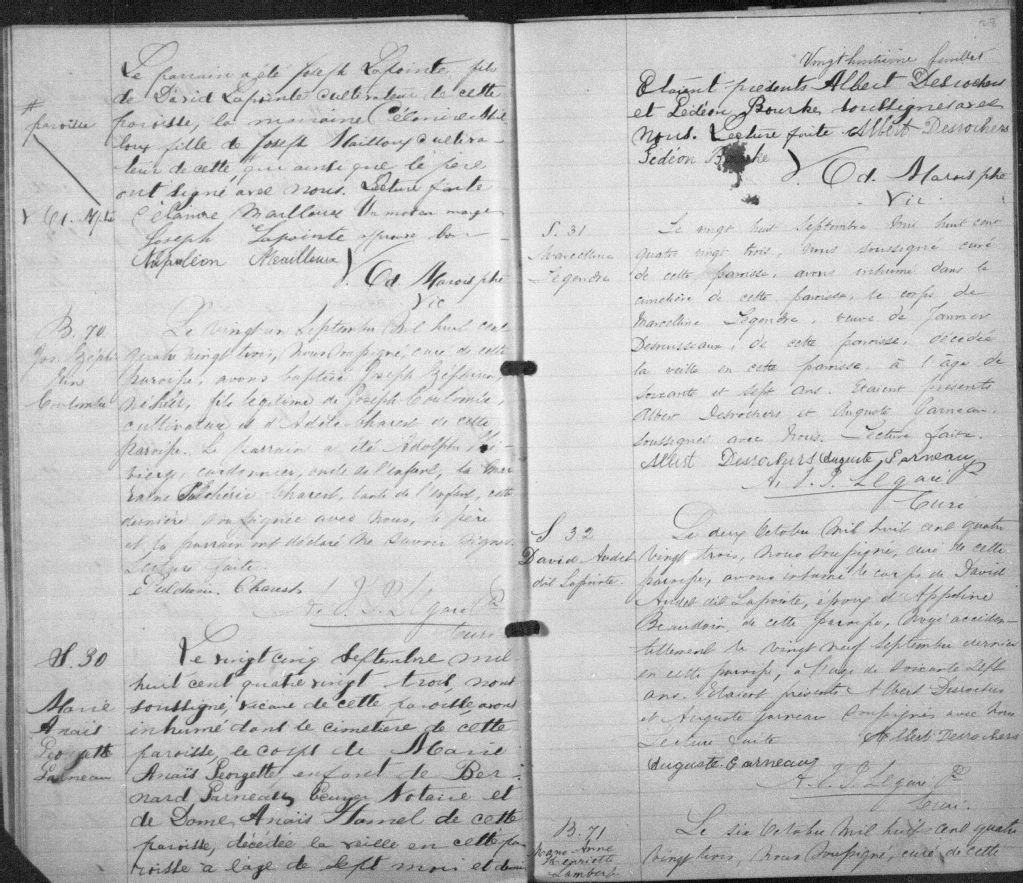 Le parrain a été Joseph Lapointe, fils
de David Lapointe cultivateur de cette
#
paroisse
paroisse, la marraine Célanire Mail-
loux fille de Joseph Mailloux cultiva-
teur de cette qui ainsi que le père
ont signé avec nous. Lecture faite
Célanire Mailloux Un mot en marge
Joseph Lapointe approuvé bon
Napoléon Mailloux
V. Od Marois ptre
Vic
B. 70
Jos. Zéphi
rin
Coulombe
Le vingt un Septembre Mil huit cent
quatre vingt trois, Nous soussigné, curé de cette
paroisse, avons baptisé Joseph Zéphirin,
né hier, fils légitime de Joseph Coulombe,
cultivateur et d'Adèle Charest de cette
paroisse. Le parrain a été Adolphe
cordonnier, oncle de l'enfant, la mar
raine Pulchérie Charest, tante de l'enfant, cette
dernière soussignée avec Nous, le père
et le parrain ont déclaré ne savoir signer.
Lecture faite.
Pulchérie Charest
A. J. P. Légaré Ptre
Curé
S. 30
Marie
Anaïs
Georgette
Garneau
Le vingt cinq Septembre mil
huit cent quatre vingt trois, nous
soussigné, vicaire de cette paroisse, avons
inhumé dans le cimetière de cette
paroisse, le corps de Marie
Anaïs Georgette enfant de Ber-
nard Garneau, Notaire et
de Dame Anaïs Hamel de cette
paroisse, décédée la veille en cette pa
roisse à l'âge de sept mois et demi
28
Vingt huitième feuillet
Etaient présents Albert Desrochers
et Gédéon Bourke soussignés avec
nous. Lecture faite Albert Desrochers
Gédéon Bourke
V. Od. Marois ptre
Vic.
S. 31
Marcelline
Légendre
Le vingt huit Septembre Mil huit cent
quatre vingt trois, nous soussigné curé
de cette paroisse, avons inhumé dans le
cimetière de cette paroisse, le corps de
Marcelline Légendre, veuve de
Desruisseaux, de cette paroisse, décédée
la veille en cette paroisse, à l'âge de
soixante et sept ans. Etaient présents
Albert Desrochers et Auguste Garneau
soussignés avec Nous. Lecture faite.
Albert Desrochers Auguste Garneau
A. J. P. Légaré P
Curé
S 32
David Audet
dit Lapointe.
Le deux Octobre Mil huit cent quatre
vingt trois, nous soussigné, curé de cette
paroisse, avons inhumé le corps de David
Audet dit Lapointe, époux d'Appoline
Beaudoin, de cette paroisse, noyé acciden-
tellement le vingt neuf Septembre dernier
en cette paroisse, à l'âge de soixante sept
ans. Etaient présents Albert Desrochers
et Auguste Garneau soussignés avec Nous
Lecture faite Albert Desrochers
Auguste Garneau
A. J. P. Légaré Ptre
Curé.
B. 71
Marie-Anne
Henriette
Lambert
Le six Octobre Mil huit cent quatre
vingt trois, nous soussigné, curé de cette